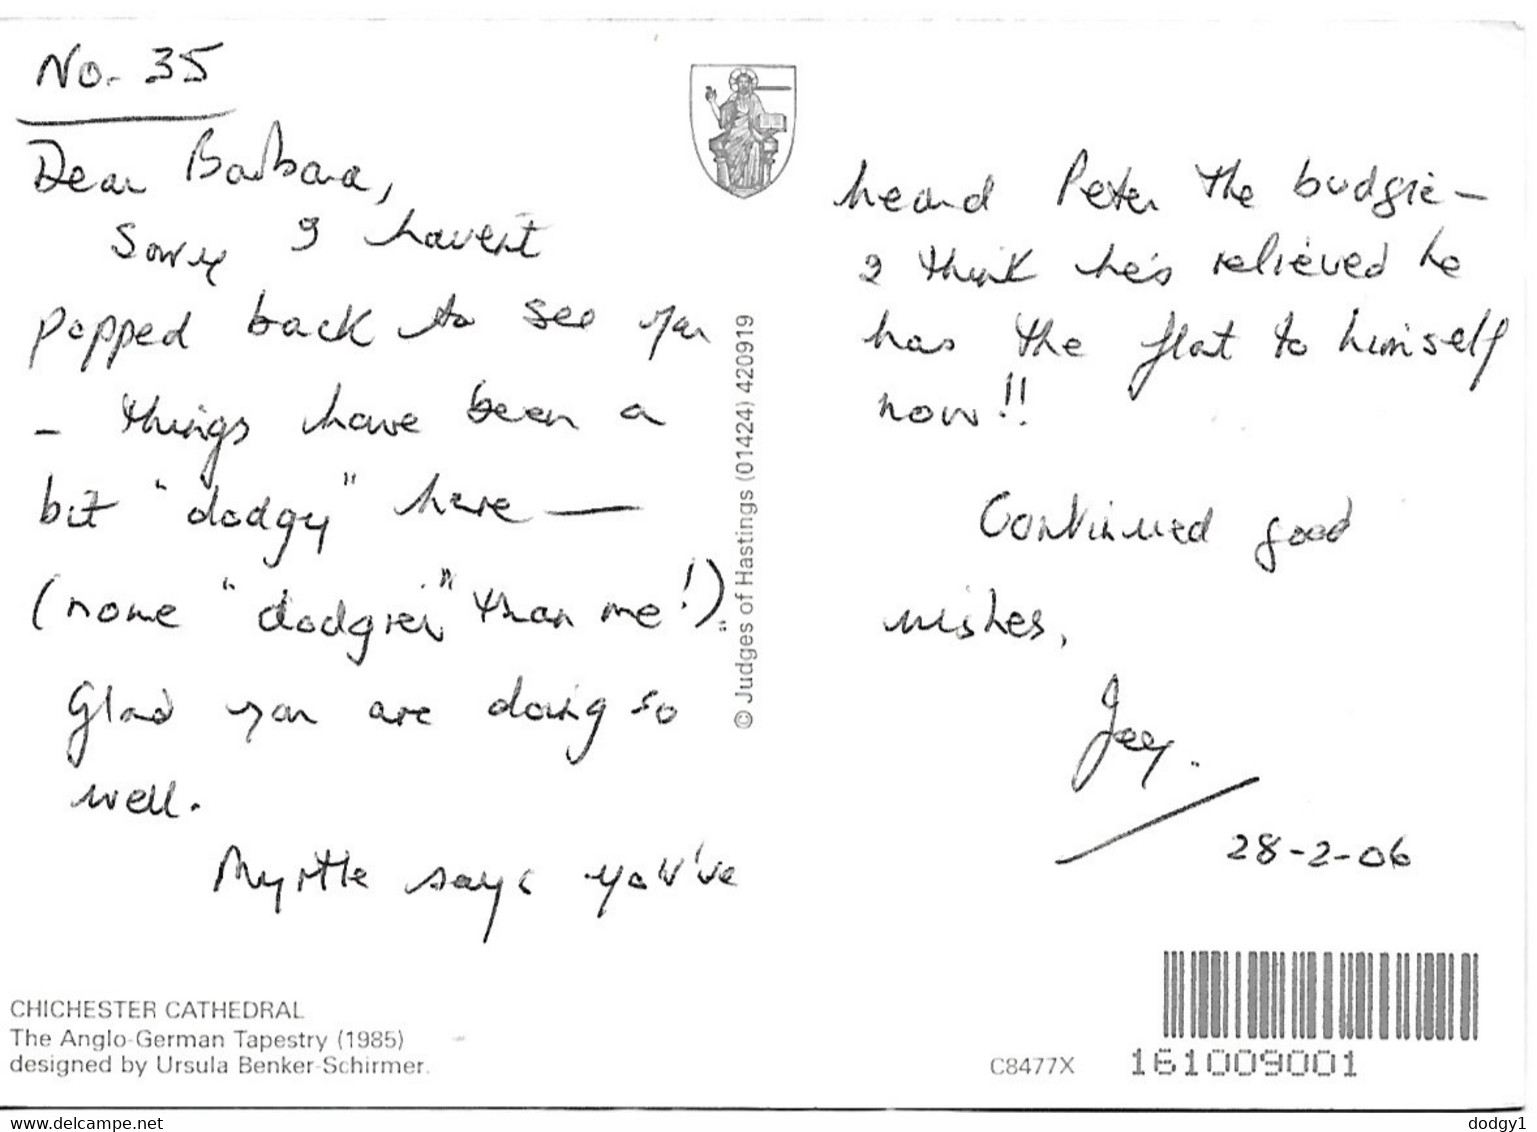 No. 35
Dear Barbara,
Sorry I havent
popped back to see you
- things have been a
bit "dodgy" here —
(none "dodgier" than me!)
Glad you are doing so
well.
Myrtle says you've
heard Peter the budgie -
I think he's relieved he
has the flat to himself
now!!
Continued good
wishes,
Joy.
28-2-06
© Judges of Hastings (01424) 420919
CHICHESTER CATHEDRAL
The Anglo-German Tapestry (1985)
designed by Ursula Benker-Schirmer.
C8477X
161009001
www.delcampe.net
dodgy1